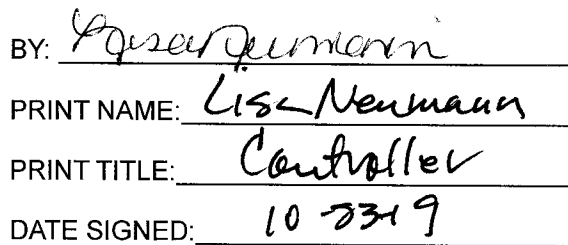 BY: Lisa Neumann
PRINT NAME: Lisa Neumann
PRINT TITLE: Controller
DATE SIGNED: 10-23-19